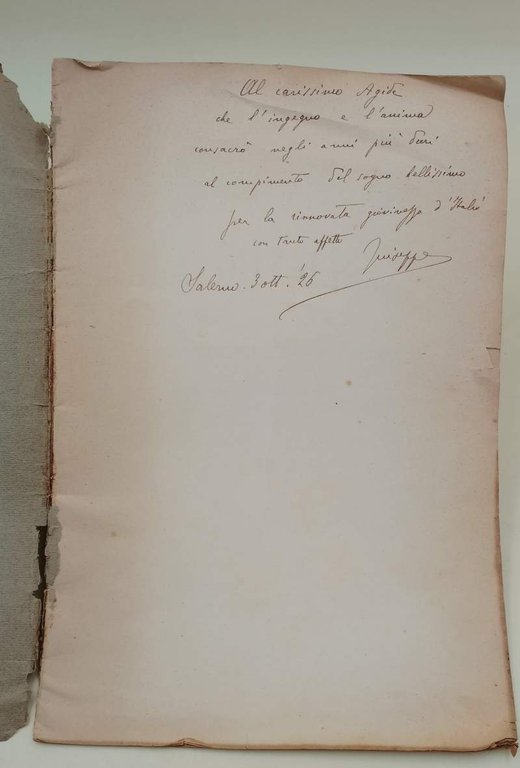 Al carissimo Agide
che l'ingegno e l'anima
consacrò negli anni più duri
al compimento del sogno bellissimo
per la rinnovata giovinezza d'Italia
con tanto affetto
Giuseppe
Salerno. 3 ott. '26